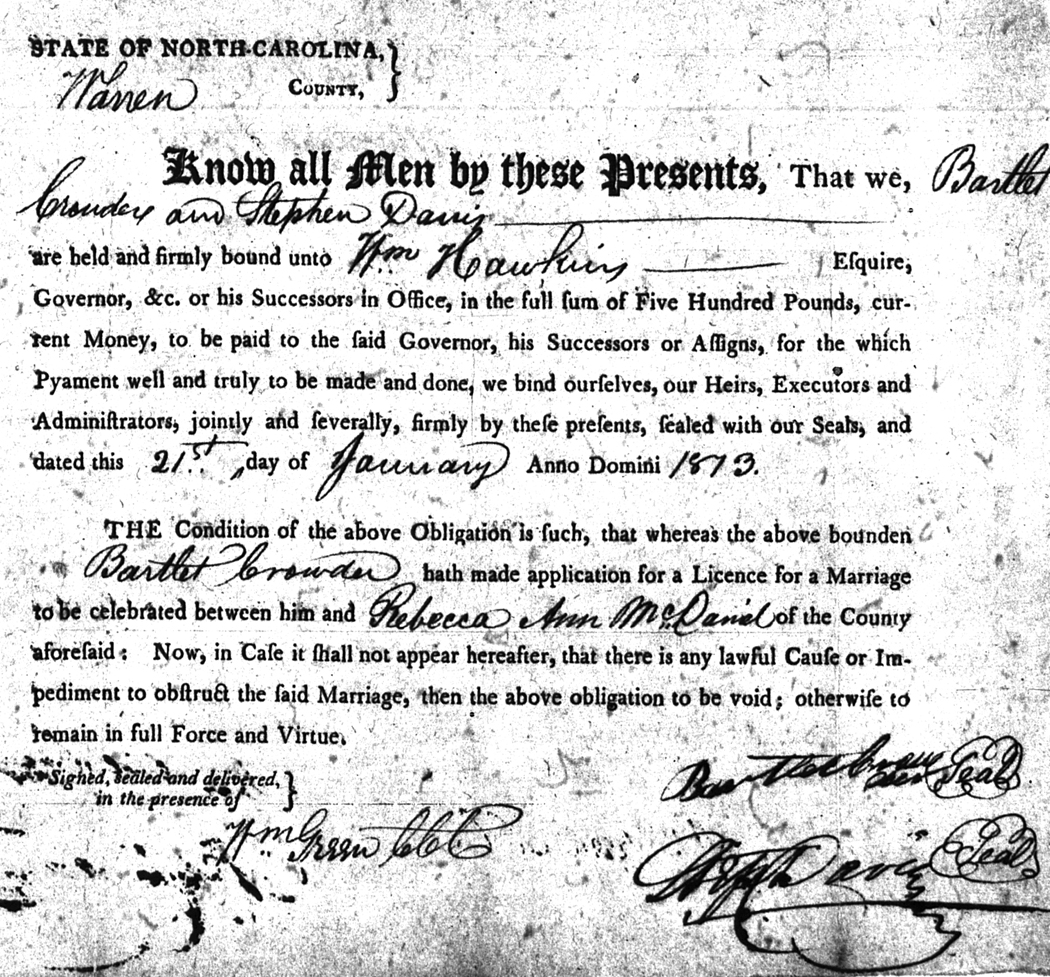 STATE OF NORTH-CAROLINA,
Warren COUNTY,
Know all Men by these Presents, That we, Bartlet
Crowder and Stephen Davis
are held and firmly bound unto Wm Hawkins Eſquire,
Governor, &c. or his Successors in Office, in the full ſum of Five Hundred Pounds, cur-
rent Money, to be paid to the ſaid Governor, his Successors or Aſſigns, for the which
Pyament well and truly to be made and done, we bind ourſelves, our Heirs, Executors and
Adminiſtrators, jointly and ſeverally, firmly by theſe preſents, ſealed with our Seals, and
dated this 21st. day of January Anno Domini 1813.
THE Condition of the above Obligation is ſuch, that whereas the above bounden
Bartlet Crowder hath made application for a Licence for a Marriage
to be celebrated between him and Rebecca Ann McDaniel of the County
aforeſaid: Now, in Caſe it ſhall not appear hereafter, that there is any lawful Cauſe or Im-
pediment to obſtruct the ſaid Marriage, then the above obligation to be void; otherwiſe to
remain in full Force and Virtue.
Signed, sealed and delivered,
in the presence of
Bartlet Crowder Seal
Wm Green
Steph Davis Seal